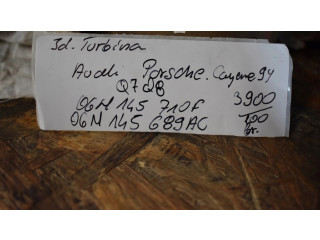 Jd. Turbina
Audi Porsche. Cayene 94
Q7 Q8
06M 145 710F 3900
06M 145 689AC 100
gr.